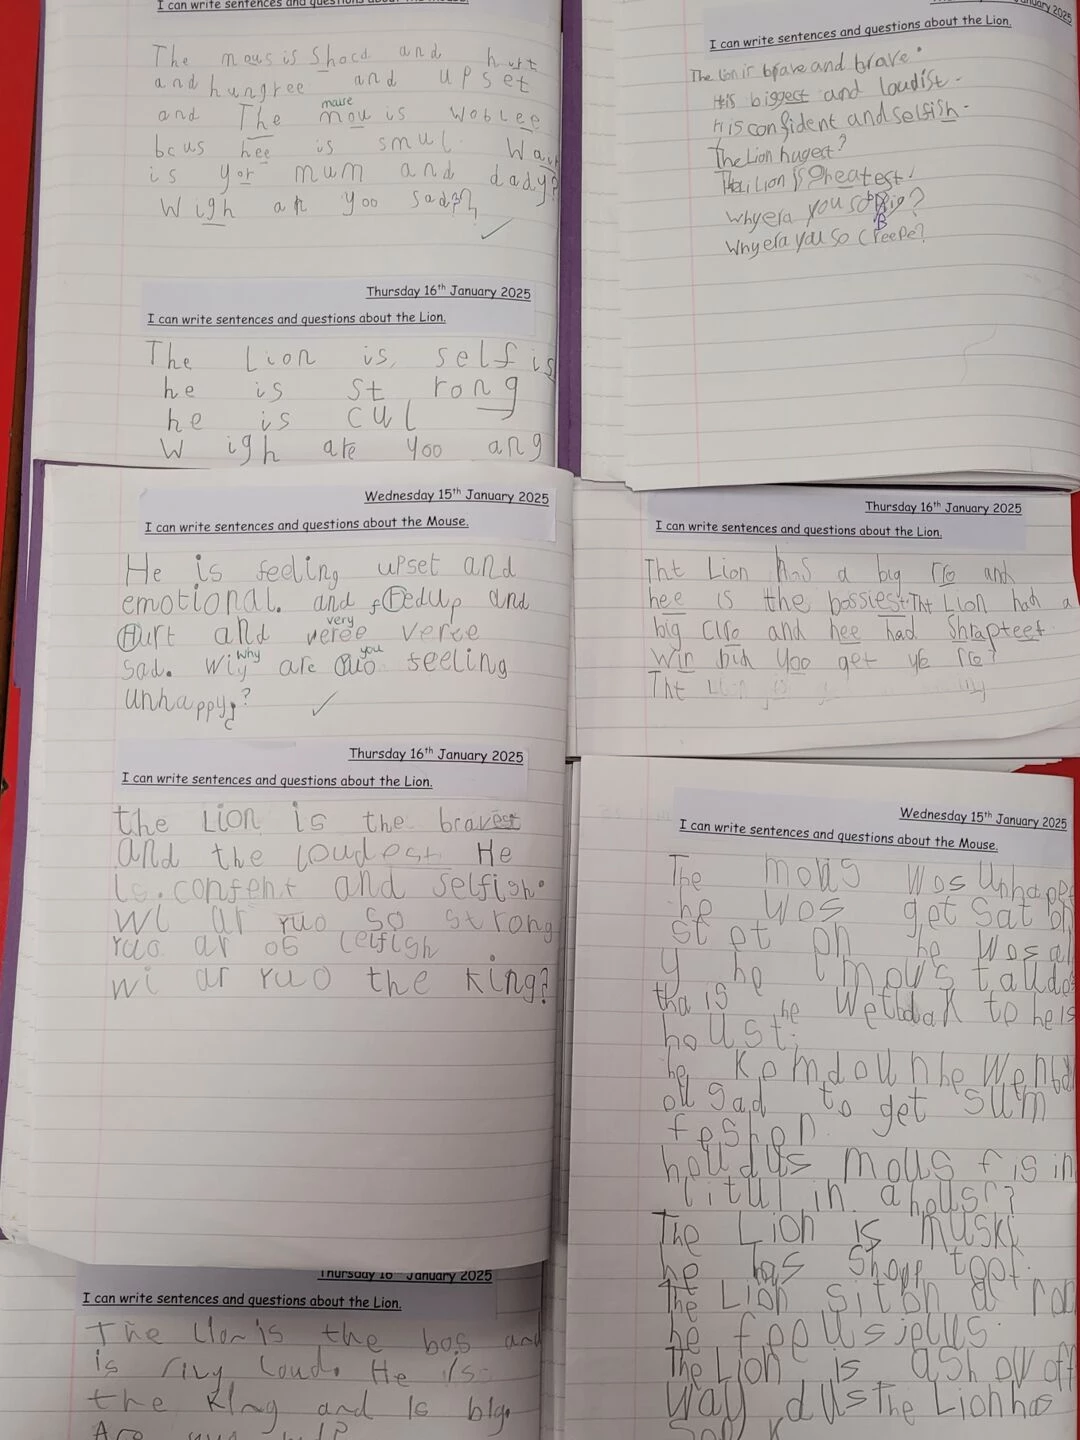 I can write sentences and questions about the Mouse.
The mous is Shocd and hurt
and hungree and upset
and The mou is wobLee
mouse
bcus hee is smul. Waur
is yor mum and dady?
Wigh ar yoo sad?
Thursday 16th January 2025
I can write sentences and questions about the Lion.
The Lion is, selfis
he is st rong
he is cul
W igh are yoo ang
January 2025
I can write sentences and questions about the Lion.
The lion is brave and brave.
His biggest and loudist.
His confident and selfish.
The Lion hugest?
Lion is Gheatest!
Why era you so Big?
B
Why era you so creepe?
Wednesday 15th January 2025
I can write sentences and questions about the Mouse.
He is feeling upset and
emotional. and fedup and
hurt and veree veree
very
sad. wiy are yuo feeling
why you
unhappy?
Thursday 16th January 2025
I can write sentences and questions about the Lion.
the Lion is the bravest
and the loudest He
is. confent and selfish.
wi ar yuo so strong
yuo ar os selfigh
wi ar yuo the king?
Thursday 16th January 2025
I can write sentences and questions about the Lion.
Tht Lion has a big rro and
hee is the bossiest. Tht Lion hah a
big clro and hee had Shrapteet
Wir bid yoo get ye rro?
Tht Lion is
Wednesday 15th January 2025
I can write sentences and questions about the Mouse.
The mous wos unhappe
he wos get sat on
st ept on he wos al
y he
tha is he to heis
houst.
he komdounhe
sad to get sum
feshen.
mous fis in
litul in a hous?
The Lion is muski
he has shopp teet.
The Lion sit on a roc
he feeusjelus.
The Lion is a show off
way dus The Lion has
Thursday 16th January 2025
I can write sentences and questions about the Lion.
The Lion is the bos and
is rivy Loud. He is
the King and is big.